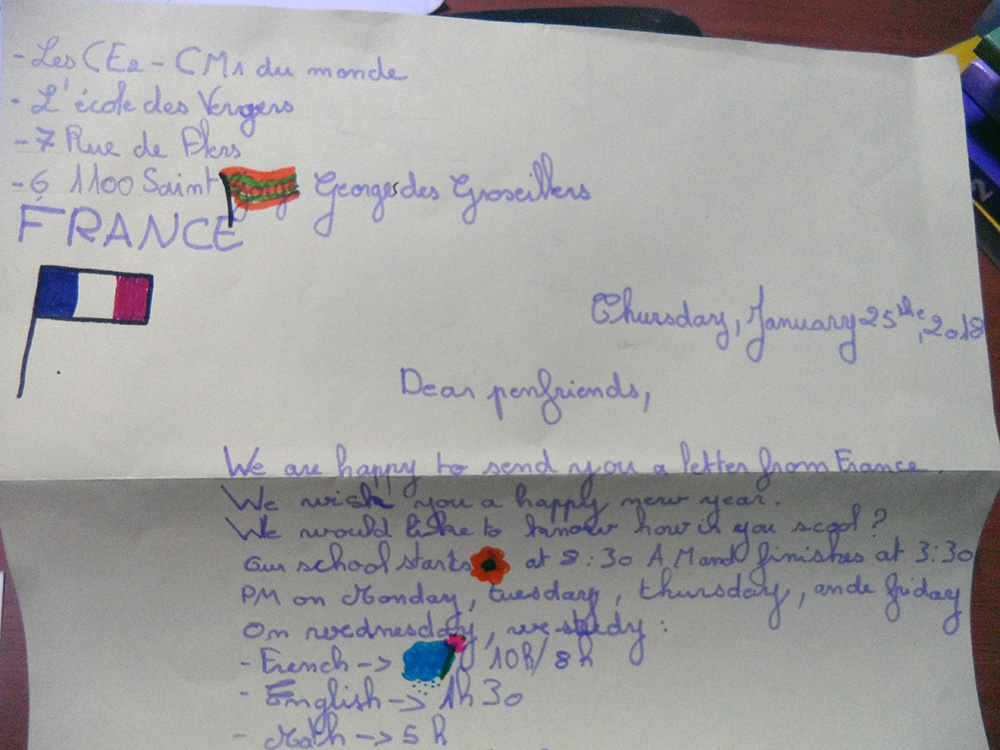 - Les CE2 - CM1 du monde
- L'école des Vergers
- 7 Rue de Flers
- 6 1100 Saint Georges des Groseillers
FRANCE
Thursday, January 25 the, 2018
Dear penfriends,
We are happy to send you a letter from France.
We wish you a happy new year.
We would like to know how is you scool?
Our school starts at 8:30 AM and finishes at 3:30
PM on Monday, tuesday, thursday, ande friday
On wednesday, we study:
- French -> 10h/8h
- English -> 1h30
- Math -> 5h